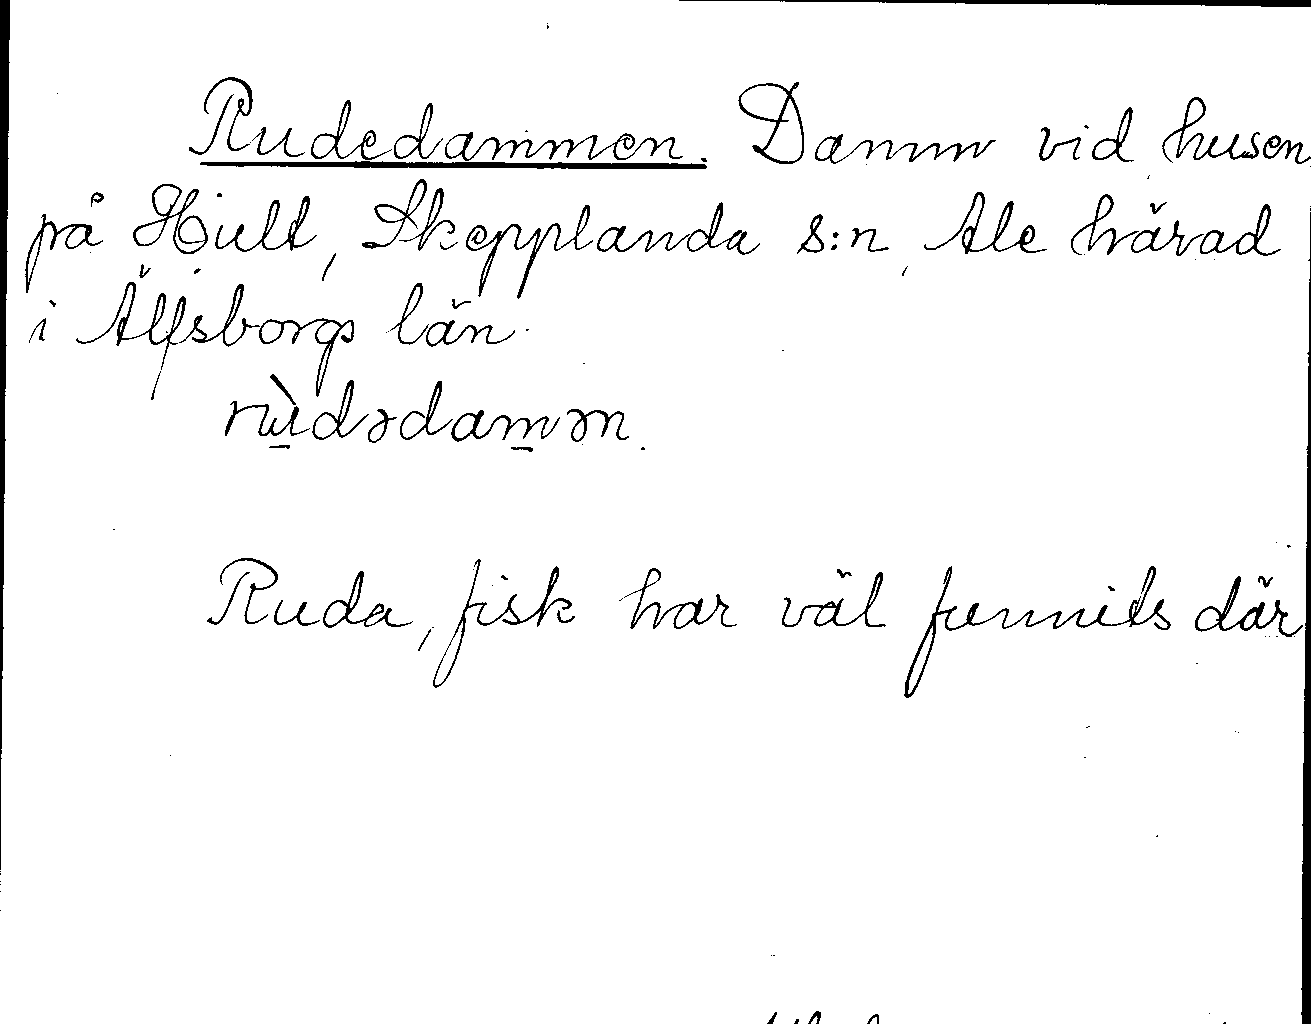 Rudedammen. Damm vid husen
på Hult, Skepplanda s:n, Ale härad
i Älfsborgs län.
rɯ̀dədamən.
Ruda, fisk har väl funnits där